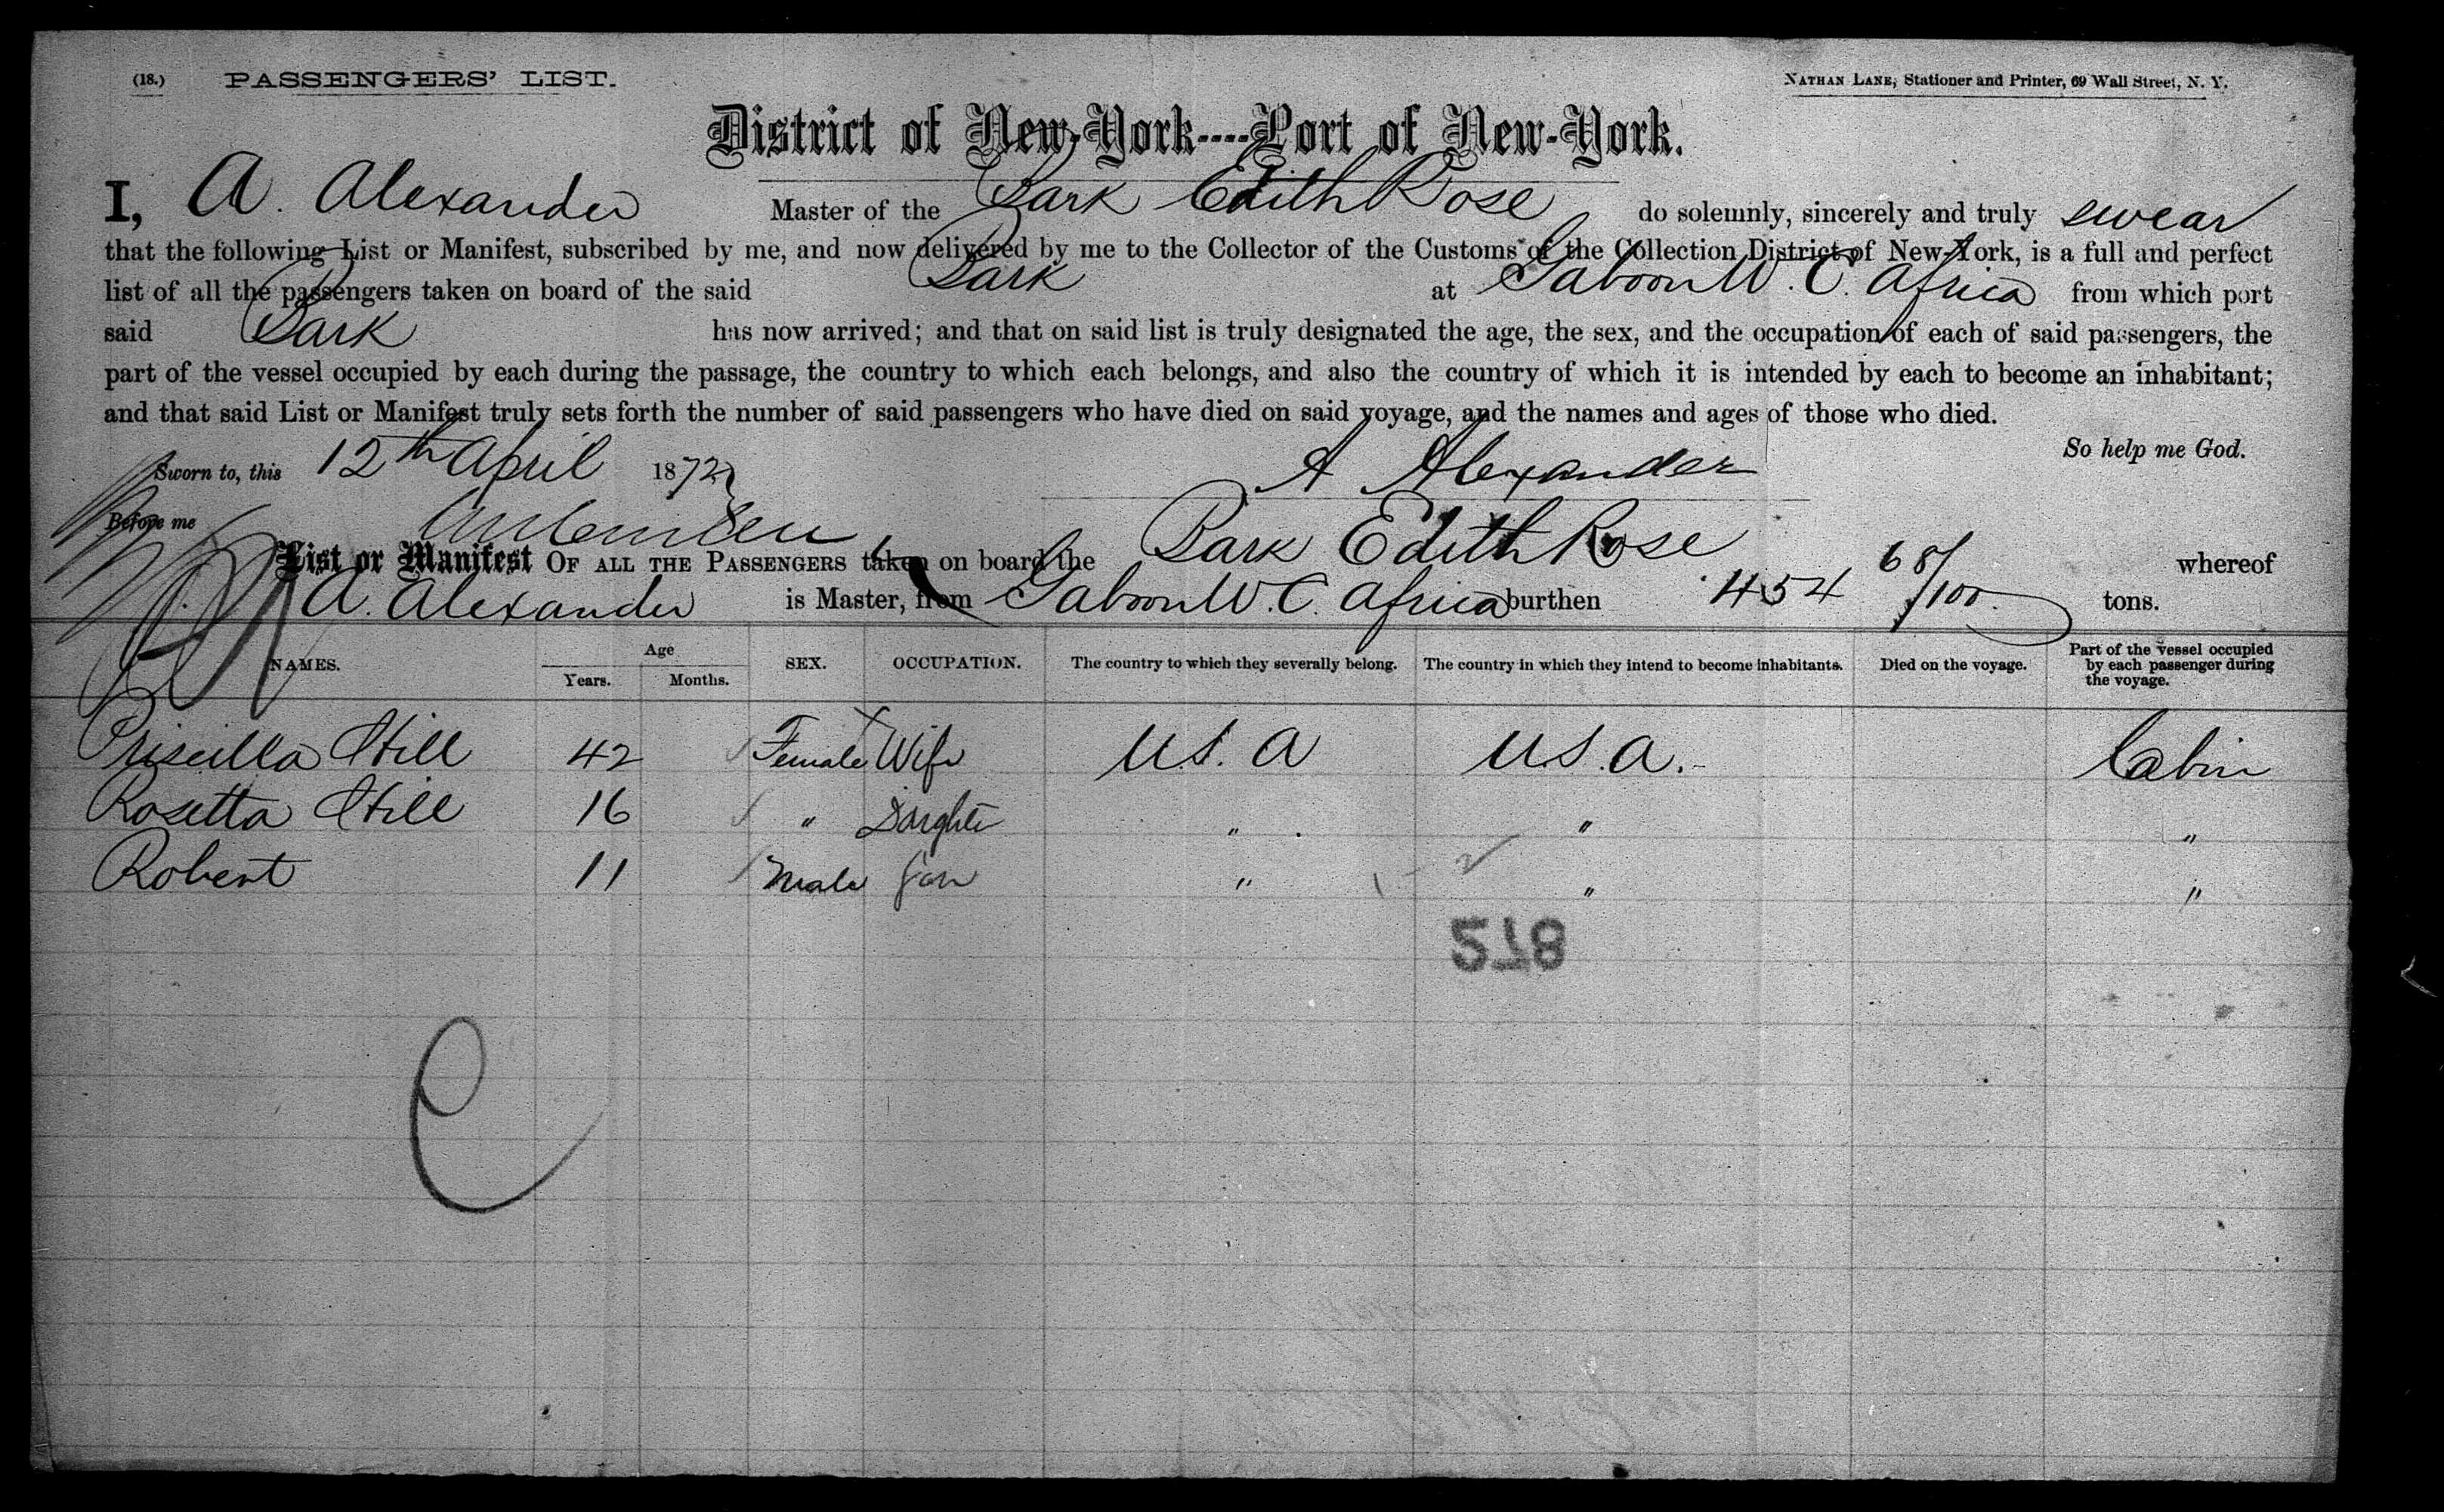 (18.) PASSENGERS' LIST. NATHAN LANE, Stationer and Printer, 69 Wall Street, N. Y.
District of New-York----Port of New-York.
I, A. Alexander Master of the Bark Edith Rose do solemnly, sincerely and truly swear
that the following List or Manifest, subscribed by me, and now delivered by me to the Collector of the Customs of the Collection District of New-York, is a full and perfect
list of all the passengers taken on board of the said Bark at Gaboon W. C. Africa from which port
said Bark has now arrived; and that on said list is truly designated the age, the sex, and the occupation of each of said passengers, the
part of the vessel occupied by each during the passage, the country to which each belongs, and also the country of which it is intended by each to become an inhabitant;
and that said List or Manifest truly sets forth the number of said passengers who have died on said voyage, and the names and ages of those who died.
So help me God.
Sworn to, this 12th April 1872 A Alexander
Before me
List or Manifest OF ALL THE PASSENGERS taken on board the Bark Edith Rose whereof
A. Alexander is Master, from Gaboon W. C. Africa burthen 454 68/100 tons.
NAMES. Age Years. Months. SEX. OCCUPATION. The country to which they severally belong. The country in which they intend to become inhabitants. Died on the voyage. Part of the vessel occupied by each passenger during the voyage.
Priscilla Hill 42 Female Wife U.S. A U.S.A. Cabin
Rosetta Hill 16 " Daughter " " "
Robert 11 Male Son " " "
278